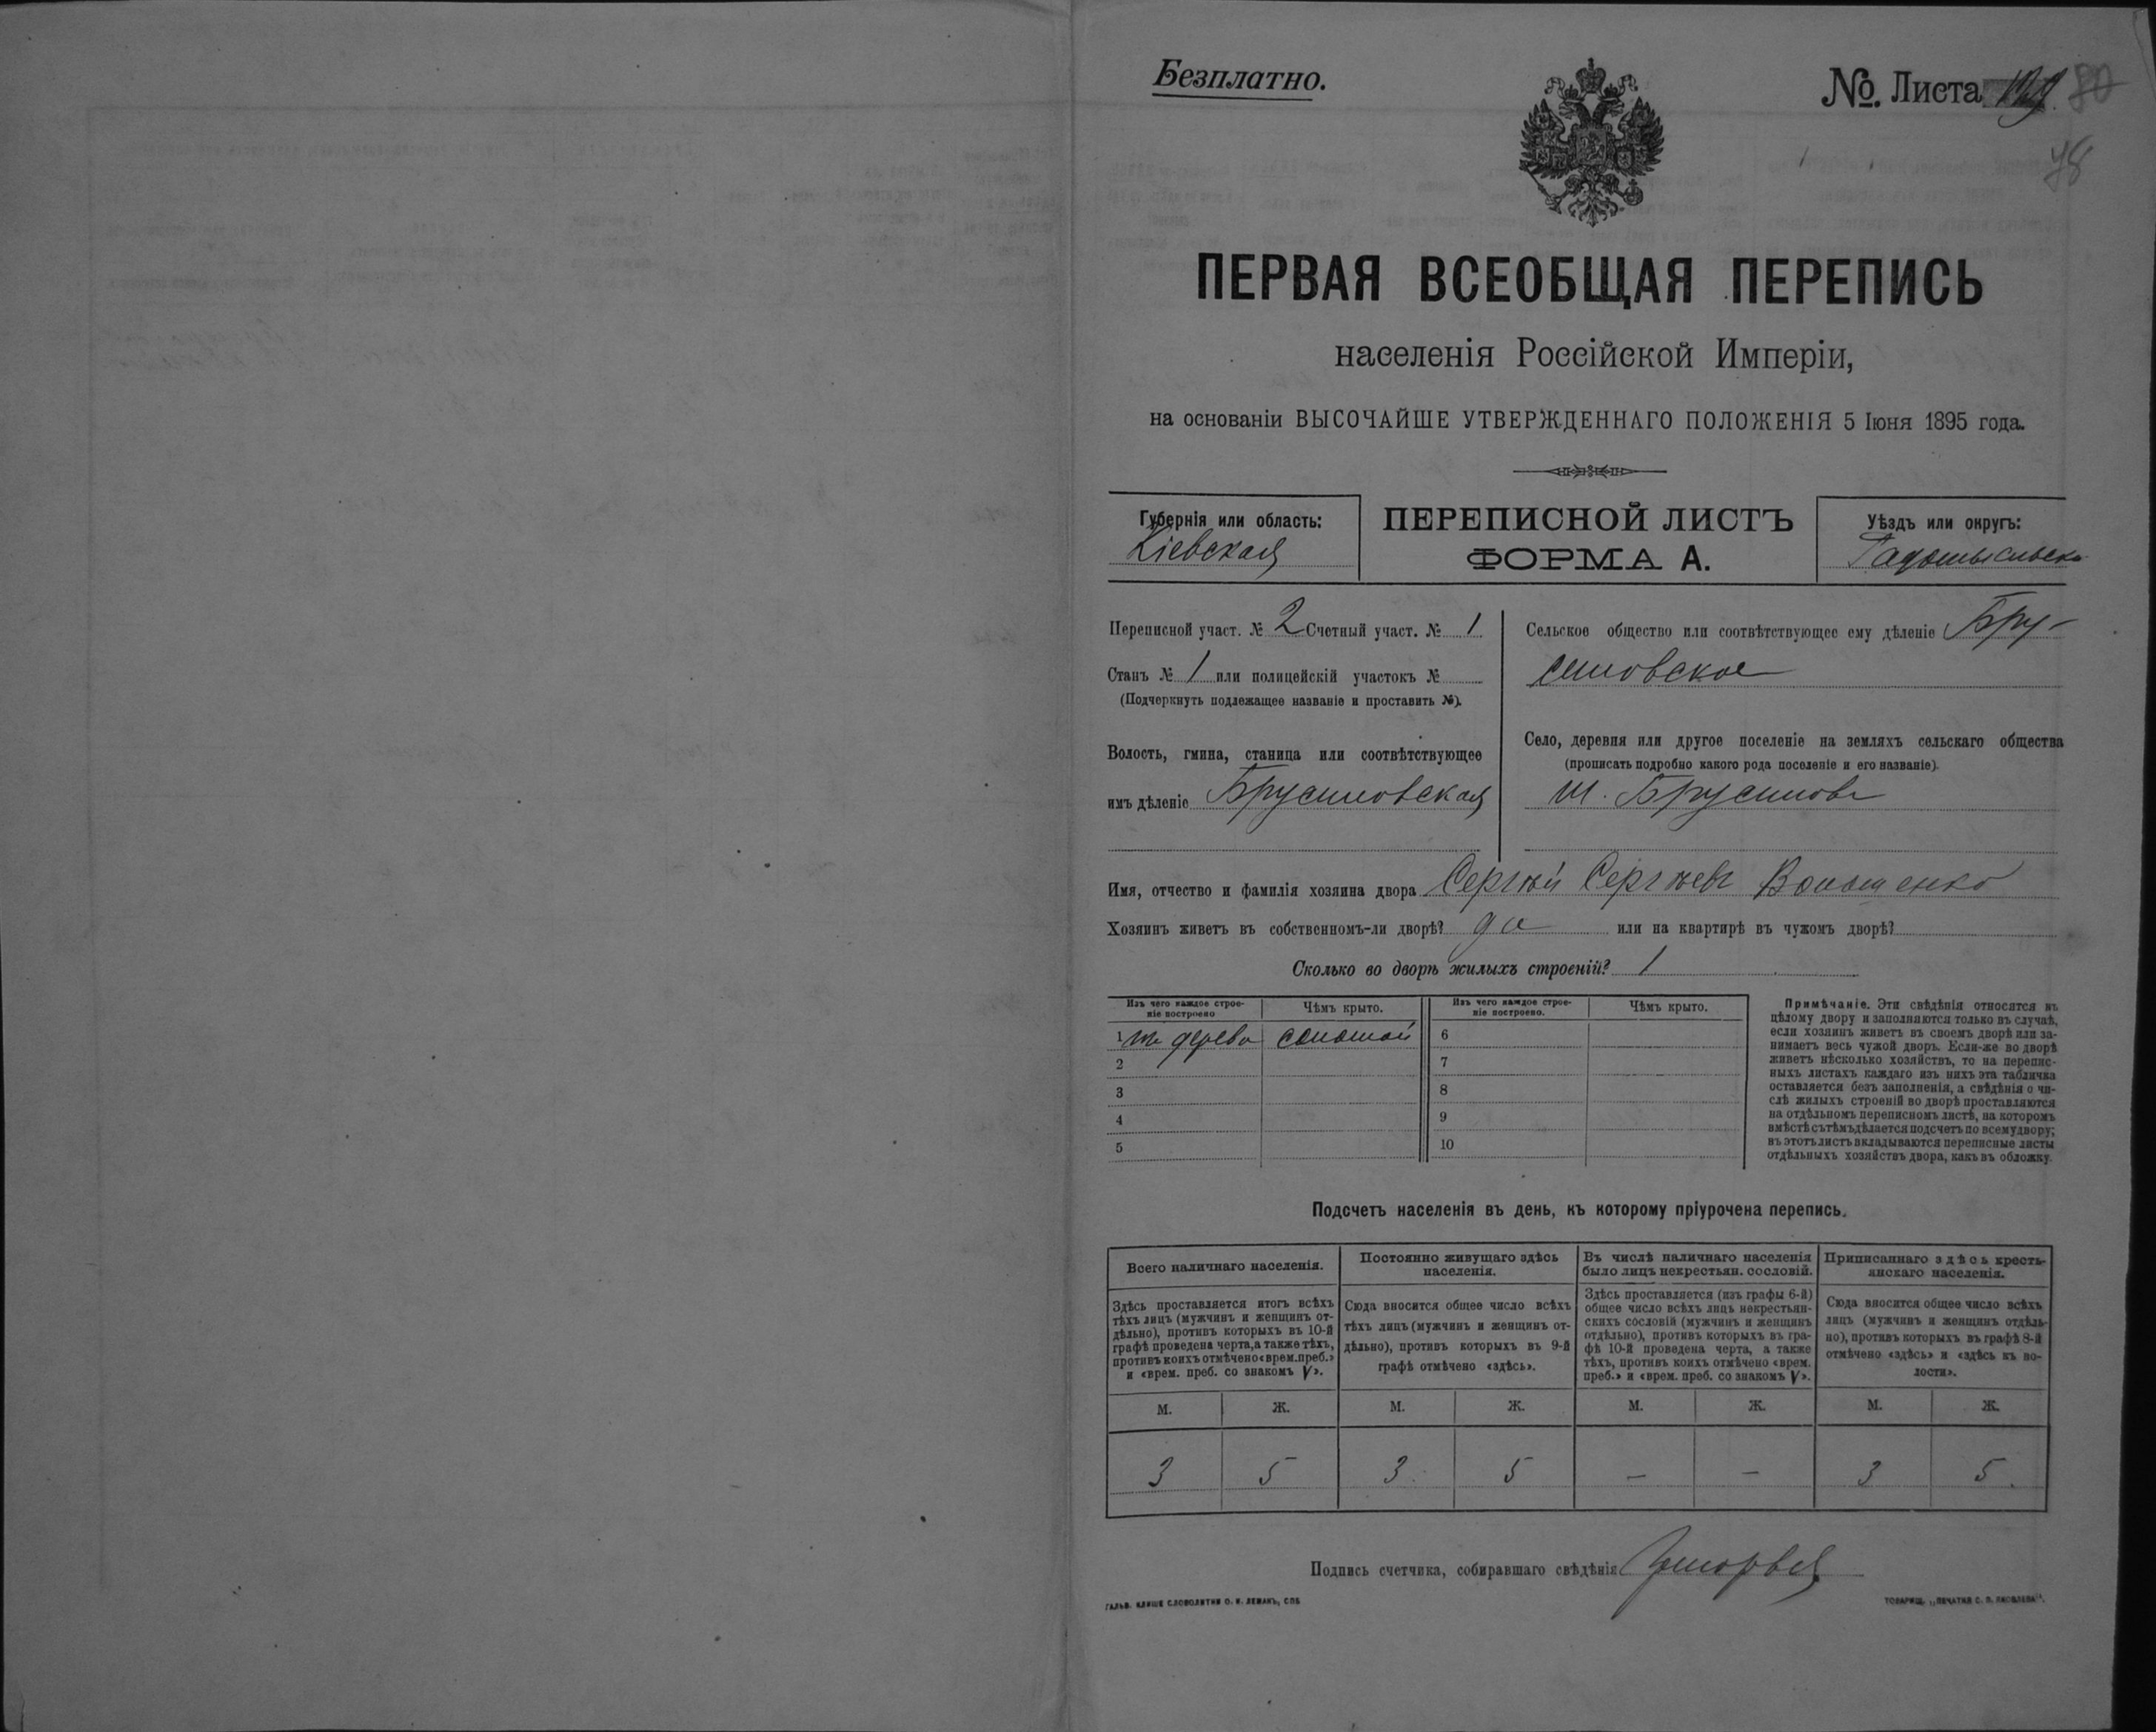 Безплатно.
№. Листа
80
78
ПЕРВАЯ ВСЕОБЩАЯ ПЕРЕПИСЬ
населенія Россійской Имперіи,
на основаніи ВЫСОЧАЙШЕ УТВЕРЖДЕННАГО ПОЛОЖЕНІЯ 5 Іюня 1895 года.
Губернія или область:
Кіевская
ПЕРЕПИСНОЙ ЛИСТЪ
ФОРМА А.
Уѣздъ или округъ:
Радомысльскі
Переписной участ. № 2 Счетный участ. № 1
Станъ № 1 или полицейскій участокъ №
(Подчеркнуть подлежащее названіе и проставить №).
Волость, гмина, станица или соотвѣтствующее
имъ дѣленіе Брусиловская
Сельское общество или соотвѣтствующее ему дѣленіе Бру-
силовское
Село, деревня или другое поселеніе на земляхъ сельскаго общества
(прописать подробно какого рода поселеніе и его названіе).
м. Брусиловъ
Имя, отчество и фамилія хозяина двора Сергѣй Сергѣевъ Волощенко
Хозяинъ живетъ въ собственномъ-ли дворѣ? да или на квартирѣ въ чужомъ дворѣ?
Сколько во дворѣ жилыхъ строеній? 1
Изъ чего каждое строе-
ніе построено
Чѣмъ крыто.
Изъ чего каждое строе-
ніе построено.
Чѣмъ крыто.
1 изъ дерева соломой 6
2 7
3 8
4 9
5 10
Примѣчаніе. Эти свѣдѣнія относятся къ
цѣлому двору и заполняются только въ случаѣ,
если хозяинъ живетъ въ своемъ дворѣ или за-
нимаетъ весь чужой дворъ. Если-же во дворѣ
живетъ нѣсколько хозяйствъ, то на перепис-
ныхъ листахъ каждаго изъ нихъ эта табличка
оставляется безъ заполненія, а свѣдѣнія о чи-
слѣ жилыхъ строеній во дворѣ проставляются
на отдѣльномъ переписномъ листѣ, на которомъ
вмѣстѣ съ тѣмъ дѣлается подсчетъ по всему двору;
въ этотъ листъ вкладываются переписные листы
отдѣльныхъ хозяйствъ двора, какъ въ обложку.
Подсчетъ населенія въ день, къ которому пріурочена перепись.
Всего наличнаго населенія.
Постоянно живущаго здѣсь
населенія.
Въ числѣ наличнаго населенія
было лицъ некрестьян. сословій.
Приписаннаго здѣсь кресть-
янскаго населенія.
Здѣсь проставляется итогъ всѣхъ
тѣхъ лицъ (мужчинъ и женщинъ от-
дѣльно), противъ которыхъ въ 10-й
графѣ проведена черта, а также тѣхъ,
противъ коихъ отмѣчено «врем. преб.»
и «врем. преб. со знакомъ V».
Сюда вносится общее число всѣхъ
тѣхъ лицъ (мужчинъ и женщинъ от-
дѣльно), противъ которыхъ въ 9-й
графѣ отмѣчено «здѣсь».
Здѣсь проставляется (изъ графы 6-й)
общее число всѣхъ лицъ некрестьян-
скихъ сословій (мужчинъ и женщинъ
отдѣльно), противъ которыхъ въ гра-
фѣ 10-й проведена черта, а также
тѣхъ, противъ коихъ отмѣчено «врем.
преб.» и «врем. преб. со знакомъ V».
Сюда вносится общее число всѣхъ
лицъ (мужчинъ и женщинъ отдѣль-
но), противъ которыхъ въ графѣ 8-й
отмѣчено «здѣсь» и «здѣсь къ во-
лости».
М. Ж. М. Ж. М. Ж. М. Ж.
3 5 3 5 — — 3 5
Подпись счетчика, собиравшаго свѣдѣнія
ГАЛЬВ. КЛИШЕ СЛОВОЛИТНИ О. И. ЛЕМАНЪ, СПБ
ТОВАРИЩ. „ПЕЧАТНЯ С. П. ЯКОВЛЕВА“.